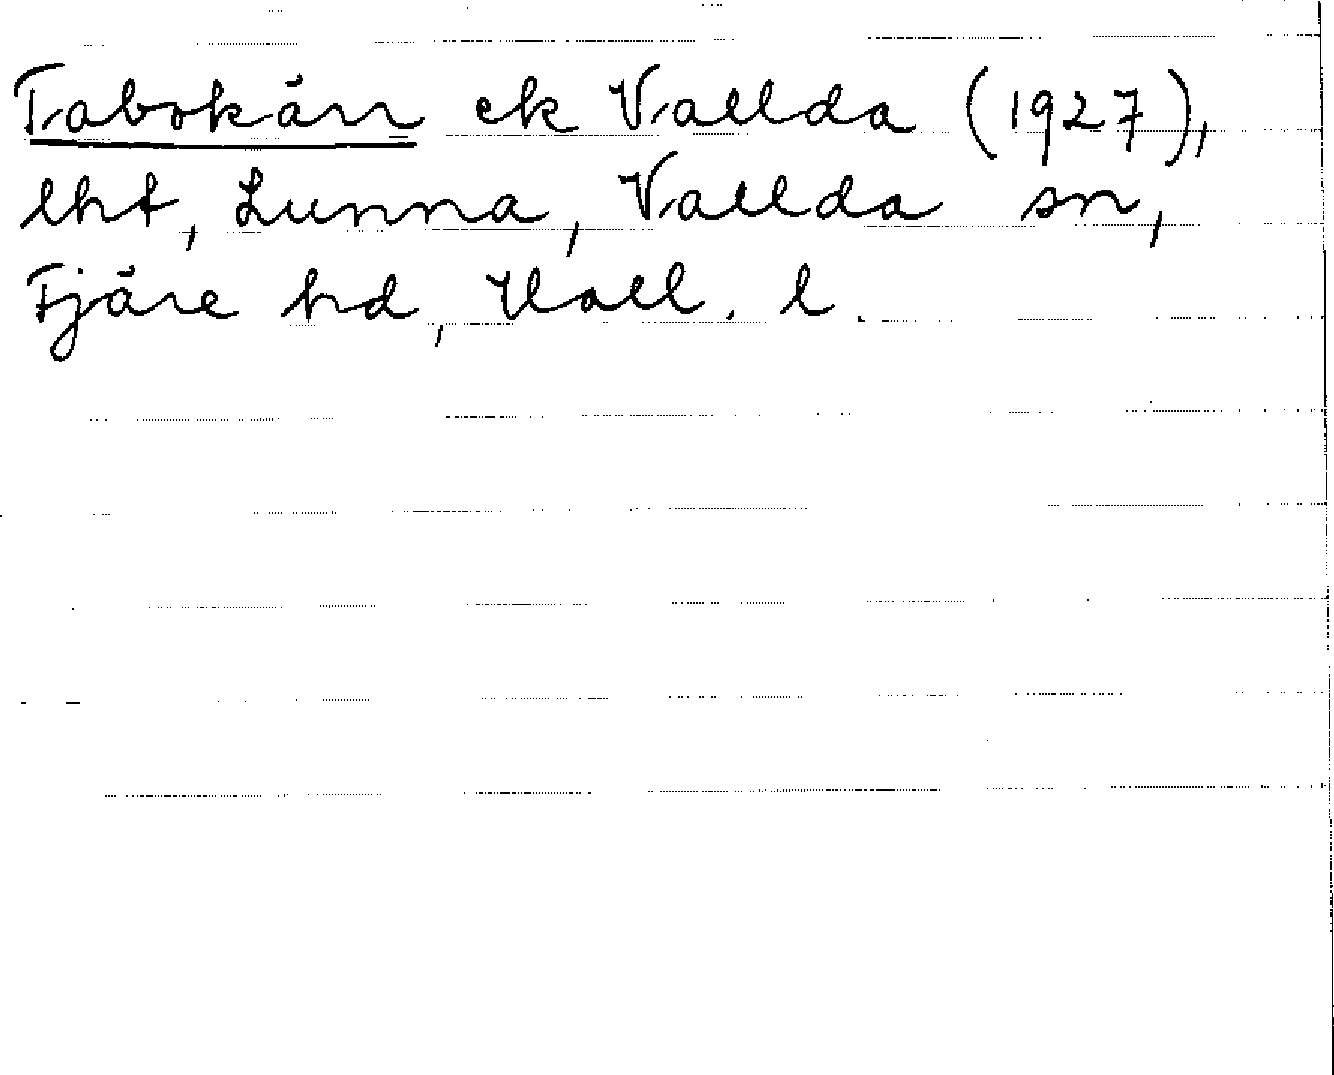 Tabokärr ek Vallda (1927),
lht, Lunna, Vallda sn,
Fjäre hd, Hall. l.